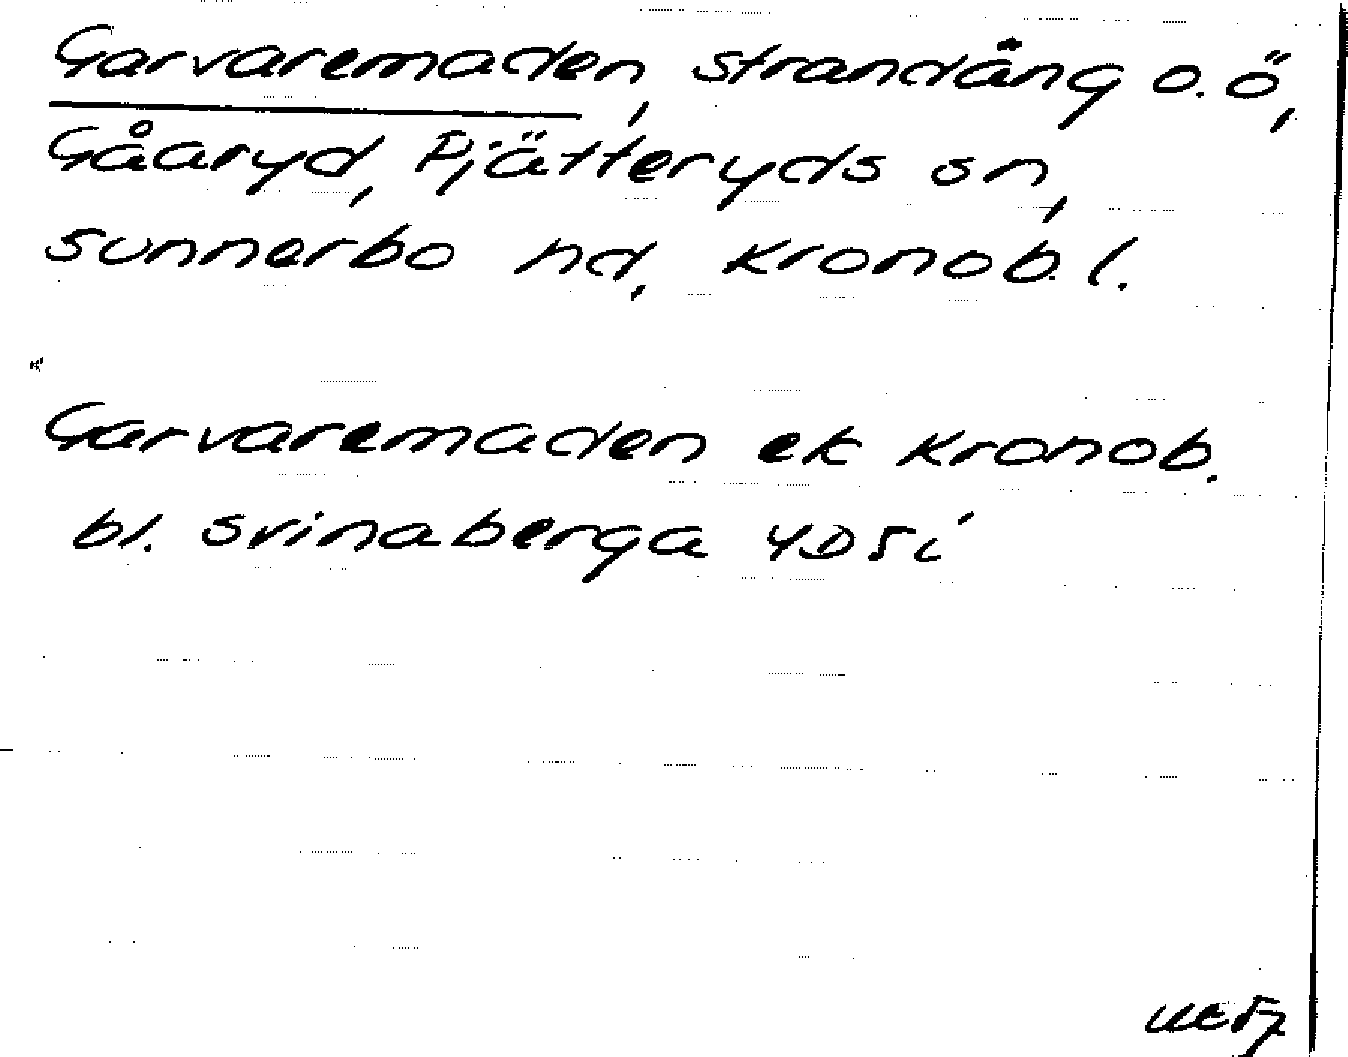 Garvaremaden, strandäng o. ö,
Gåaryd, Pjätteryds sn,
Sunnerbo hd, Kronob. l.
Garvaremaden ek Kronob.
bl. Svinaberga 4D5i